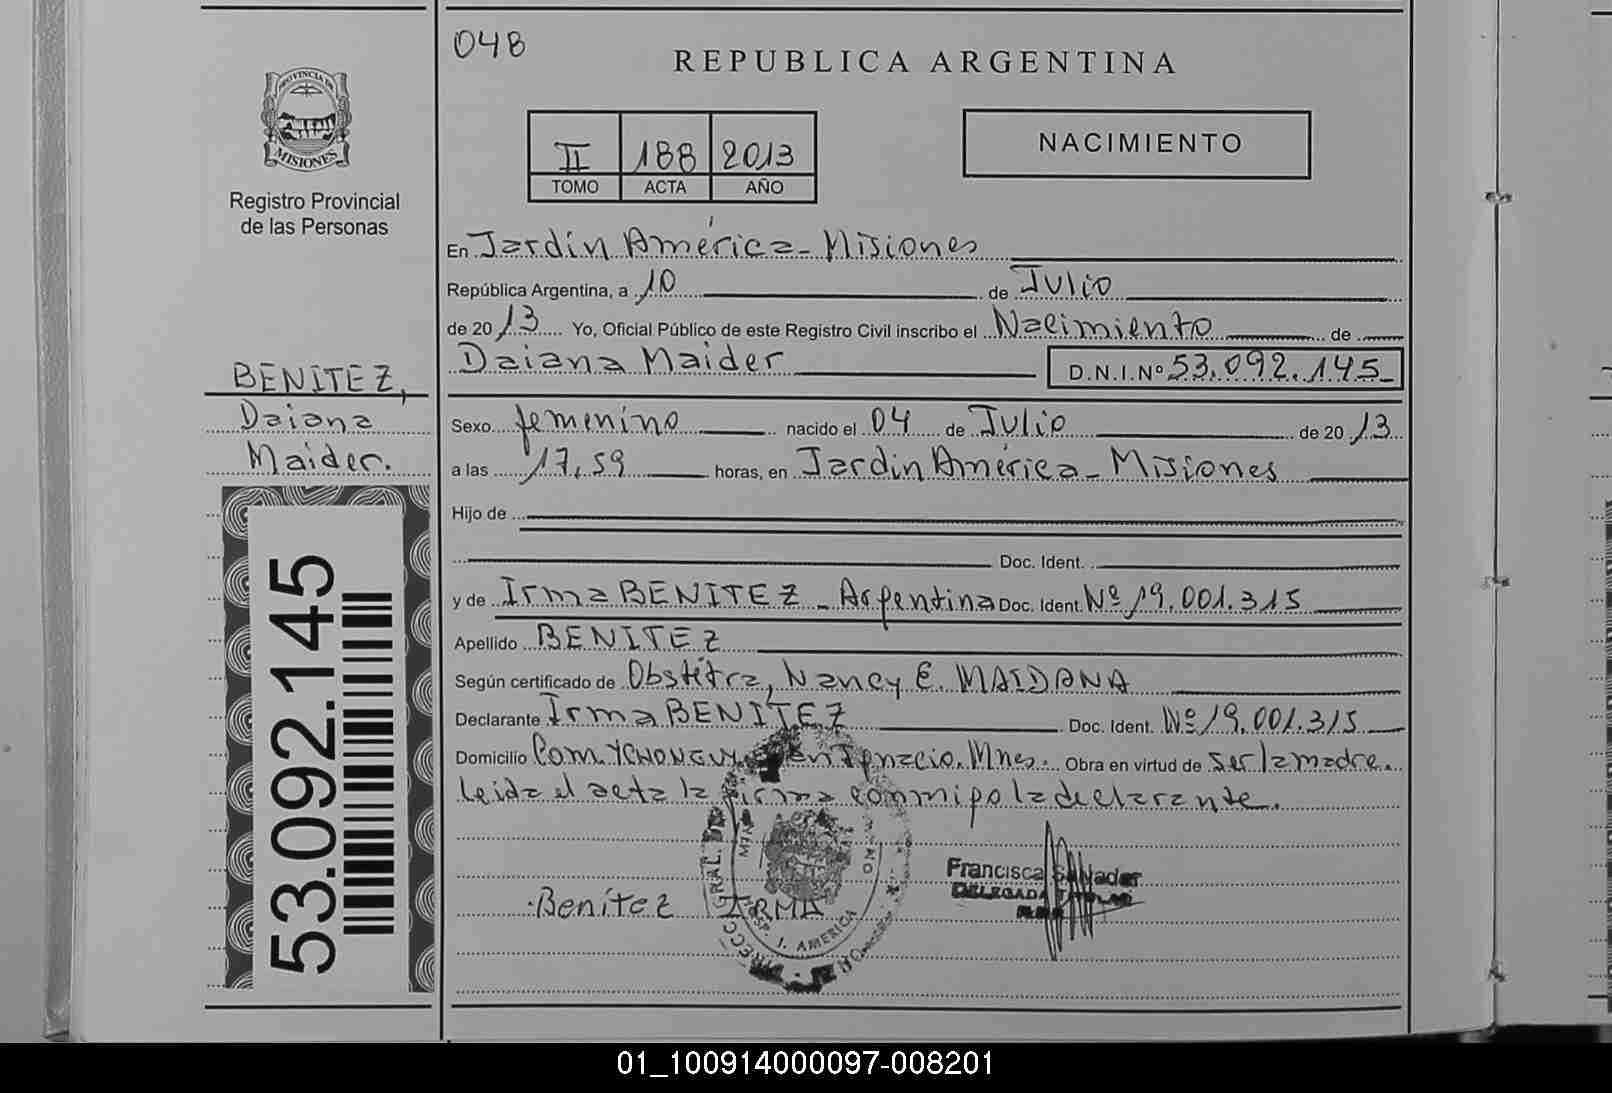 048
REPUBLICA ARGENTINA
PROVINCIA DE
MISIONES
Registro Provincial
de las Personas
II 188 2013
TOMO ACTA AÑO
NACIMIENTO
En Jardín América - Misiones
República Argentina, a 10 de Julio
de 2013 Yo, Oficial Público de este Registro Civil inscribo el Nacimiento de
Daiana Maider D.N.I.Nº 53.092.145
BENITEZ,
Daiana
Maider.
Sexo femenino nacido el 04 de Julio de 2013
a las 17,59 horas, en Jardín América - Misiones
Hijo de
Doc. Ident.
y de Irma BENITEZ - Argentina Doc. Ident. Nº 19.001.315
Apellido BENITEZ
Según certificado de Obstétra, Nancy E. MAIDANA
Declarante Irma BENITEZ Doc. Ident. Nº 19.001.315
Domicilio Com. San Ignacio. Mnes. Obra en virtud de ser la madre.
leida el acta la firma conmigo la declarante.
Francisca Salvador
DELEGADA TITULAR
Benítez IRMA
J. AMERICA
53.092.145
01_100914000097-008201